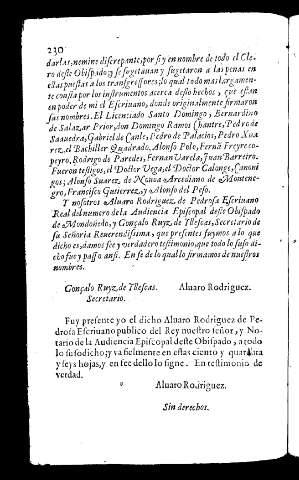 230
darlas, nemine discrepante, por si y en nombre de todo el Cle-
ro deste Obispado, y se sugetauan y sugetaron a las penas en
ellas puestas a los transgressores; lo qual todo mas largamen-
te consta por los instrumentos acerca dello hechos, que estan
en poder de mi el Escriuano, donde originalmente firmaron
sus nombres. El Licenciado Santo Domingo, Bernardino
de Salazar Prior, don Domingo Ramos Chantre, Pedro de
Saauedra, Gabriel de Cante, Pedro de Palacios, Pedro Xua
rez, el Bachiller Quadrado, Alonso Polo, Fernã Freyre co-
peyro, Rodrigo de Paredes, Fernan Varela, Juan Barreiro.
Fueron testigos, el Doctor Vega, el Doctor Calonge, Canoni
gos; Alonso Suarez, de Nouoa Arcediano de Montene-
gro, Francisco Gutierrez, y Alonso del Peso.
Y nosotros Aluaro Rodriguez de Pedrosa Escriuano
Real del numero de la Audiencia Episcopal deste Obispado
de Mondoñedo, y Gonçalo Ruyz, de Yllescas, Secretario de
su Señoria Reuerendissima, que presentes fuymos a lo que
dicho es, damos fee y verdadero testimonio, que todo lo suso di-
cho fue y passo ansi. En fe de lo qual lo firmamos de nuestros
nombres.
Gonçalo Ruyz, de Yllescas. Aluaro Rodriguez.
Secretario.
Fuy presente yo el dicho Aluaro Rodriguez de Pe-
drosa Escriuano publico del Rey nuestro señor, y No-
tario de la Audiencia Episcopal deste Obispado, a todo
lo susodicho; y va fielmente en estas ciento y quarenta
y seys hojas, y en fee dello lo signe. En testimonio de
verdad.
Aluaro Rodriguez.
Sin derechos.